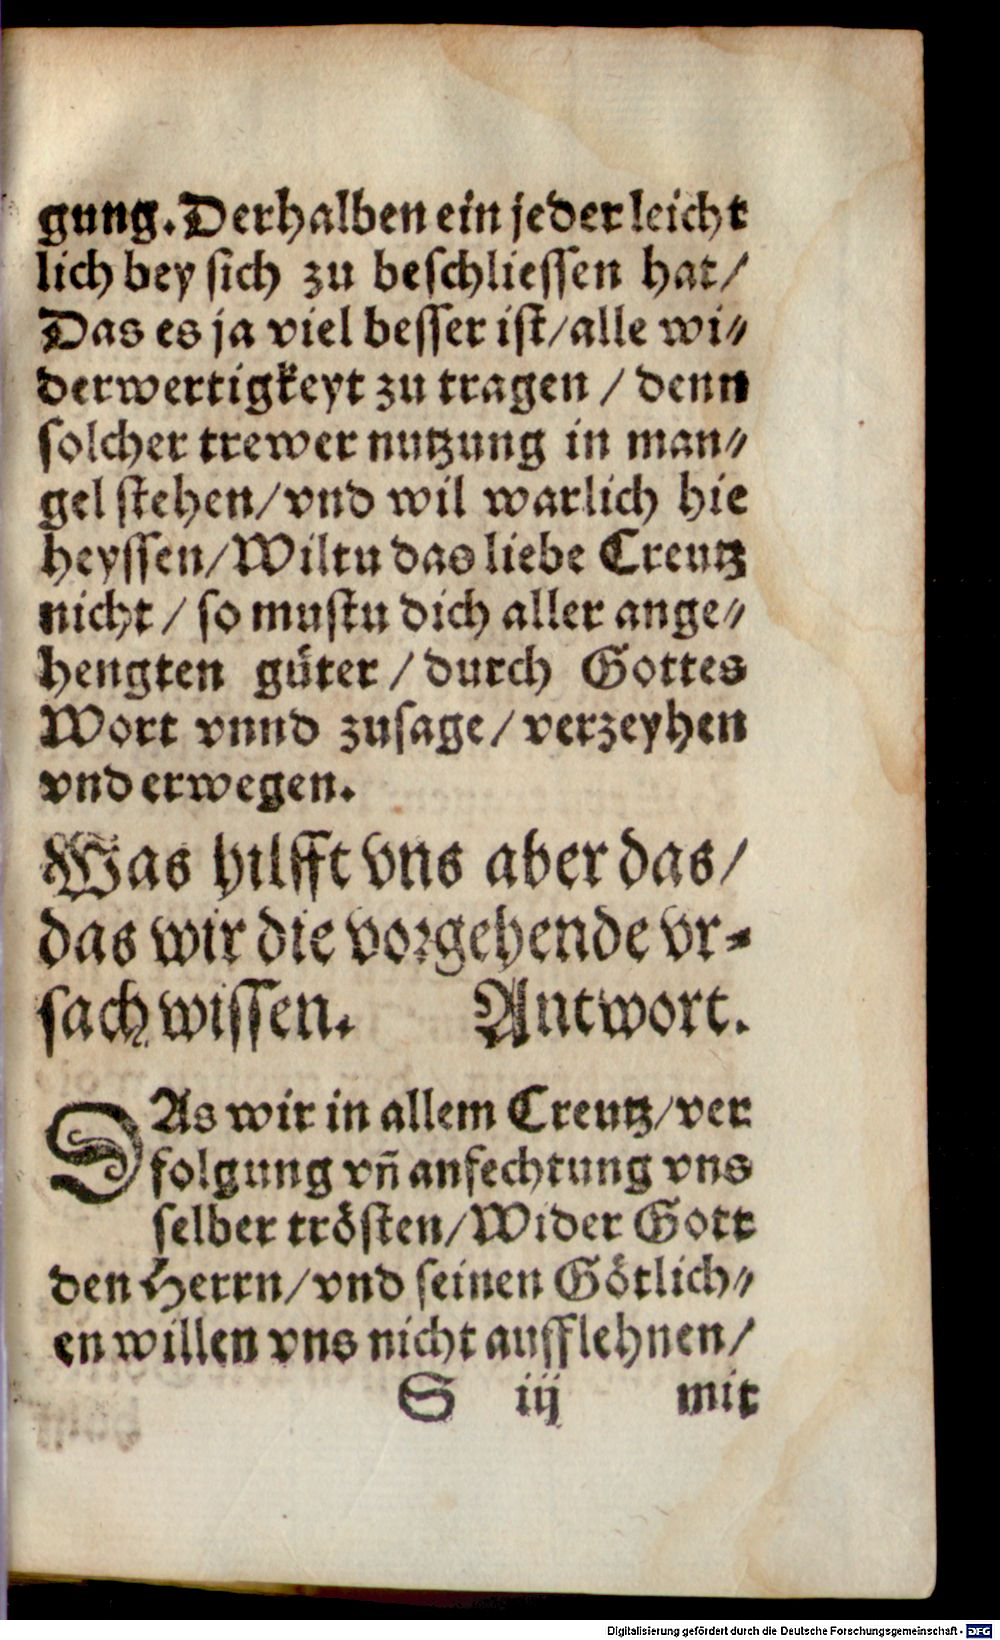 gung. Derhalben ein jeder leicht
lich bey sich zu beschliessen hat/
Das es ja viel besser ist/alle wi⸗
derwertigkeyt zu tragen / denn
solcher trewer nutzung in man⸗
gel stehen/vnd wil warlich hie
heyssen/Wiltu das liebe Creutz
nicht / so mustu dich aller ange⸗
hengten güter / durch Gottes
Wort vnnd zusage/verzeyhen
vnd erwegen.
Was hilfft vns aber das/
das wir die vorgehende vr⸗
sach wissen. Antwort.
DAs wir in allem Creutz/ver
folgung vñ anfechtung vns
selber trösten/Wider Gott
den Herrn/vnd seinen Götlich⸗
en willen vns nicht aufflehnen/
S iij mit
Digitalisierung gefördert durch die Deutsche Forschungsgemeinschaft - DFG